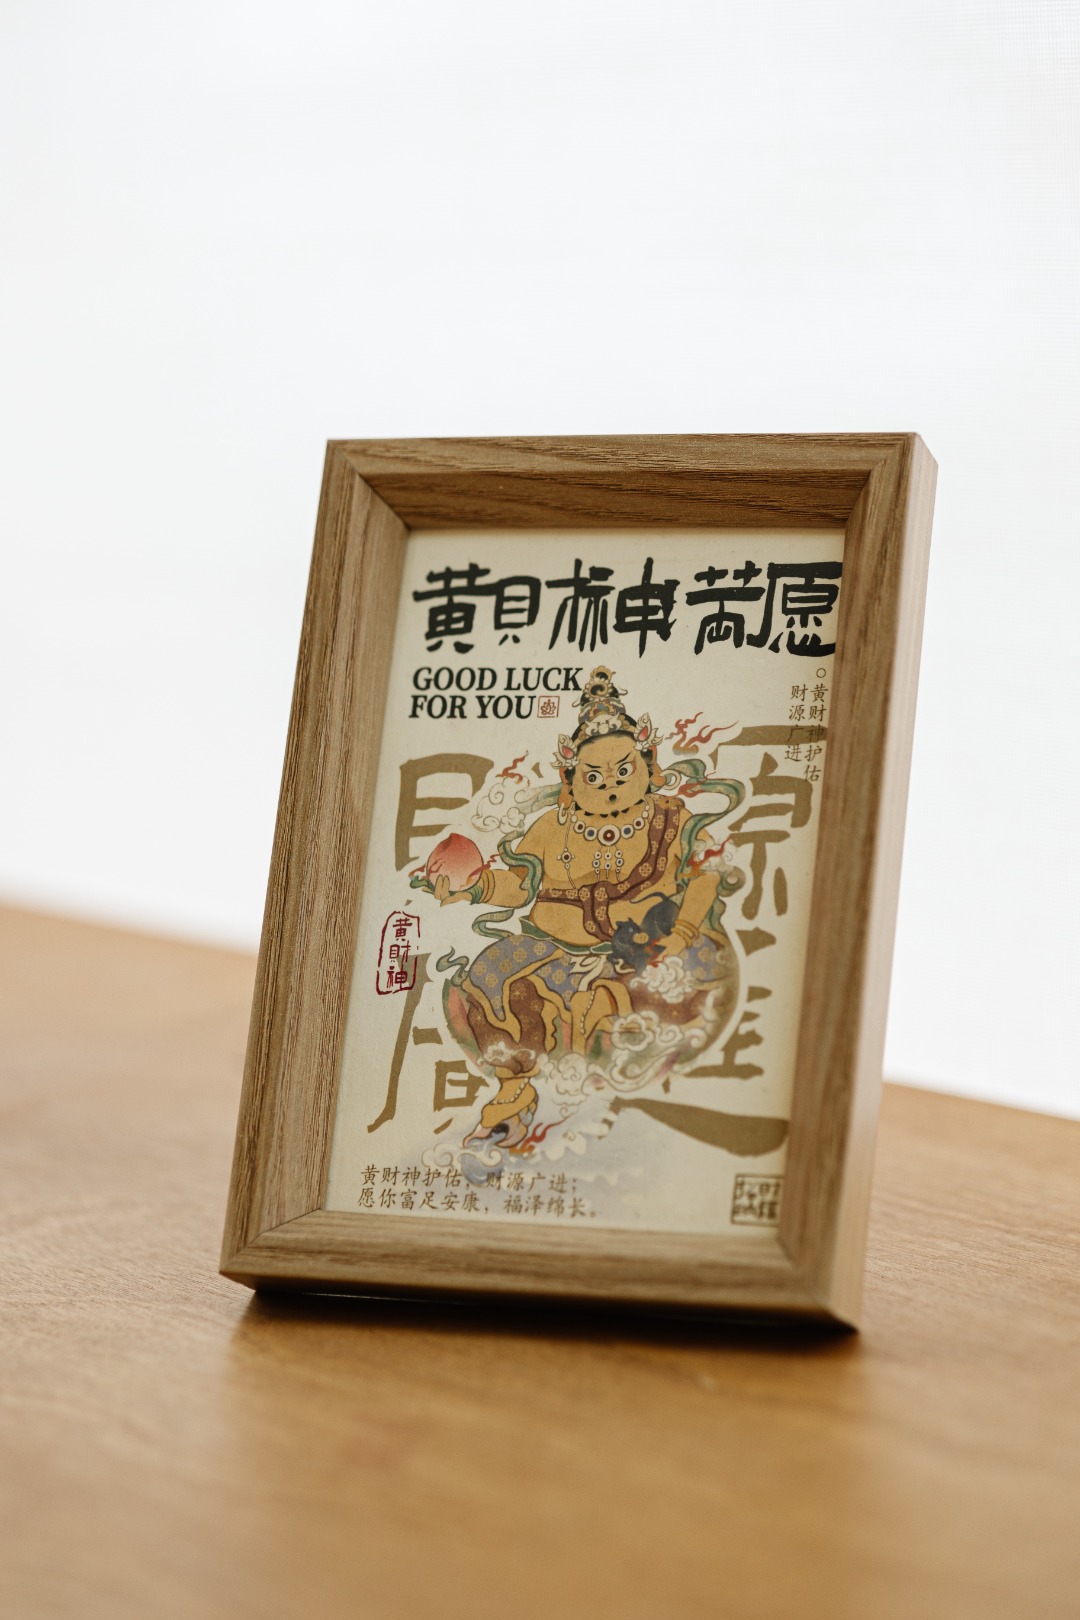 黄财神満愿
GOOD LUCK
FOR YOU
黄财神护佑
财源广进
財源
廣進
黄财神
黄财神护佑，财源广进；
愿你富足安康，福泽绵长。